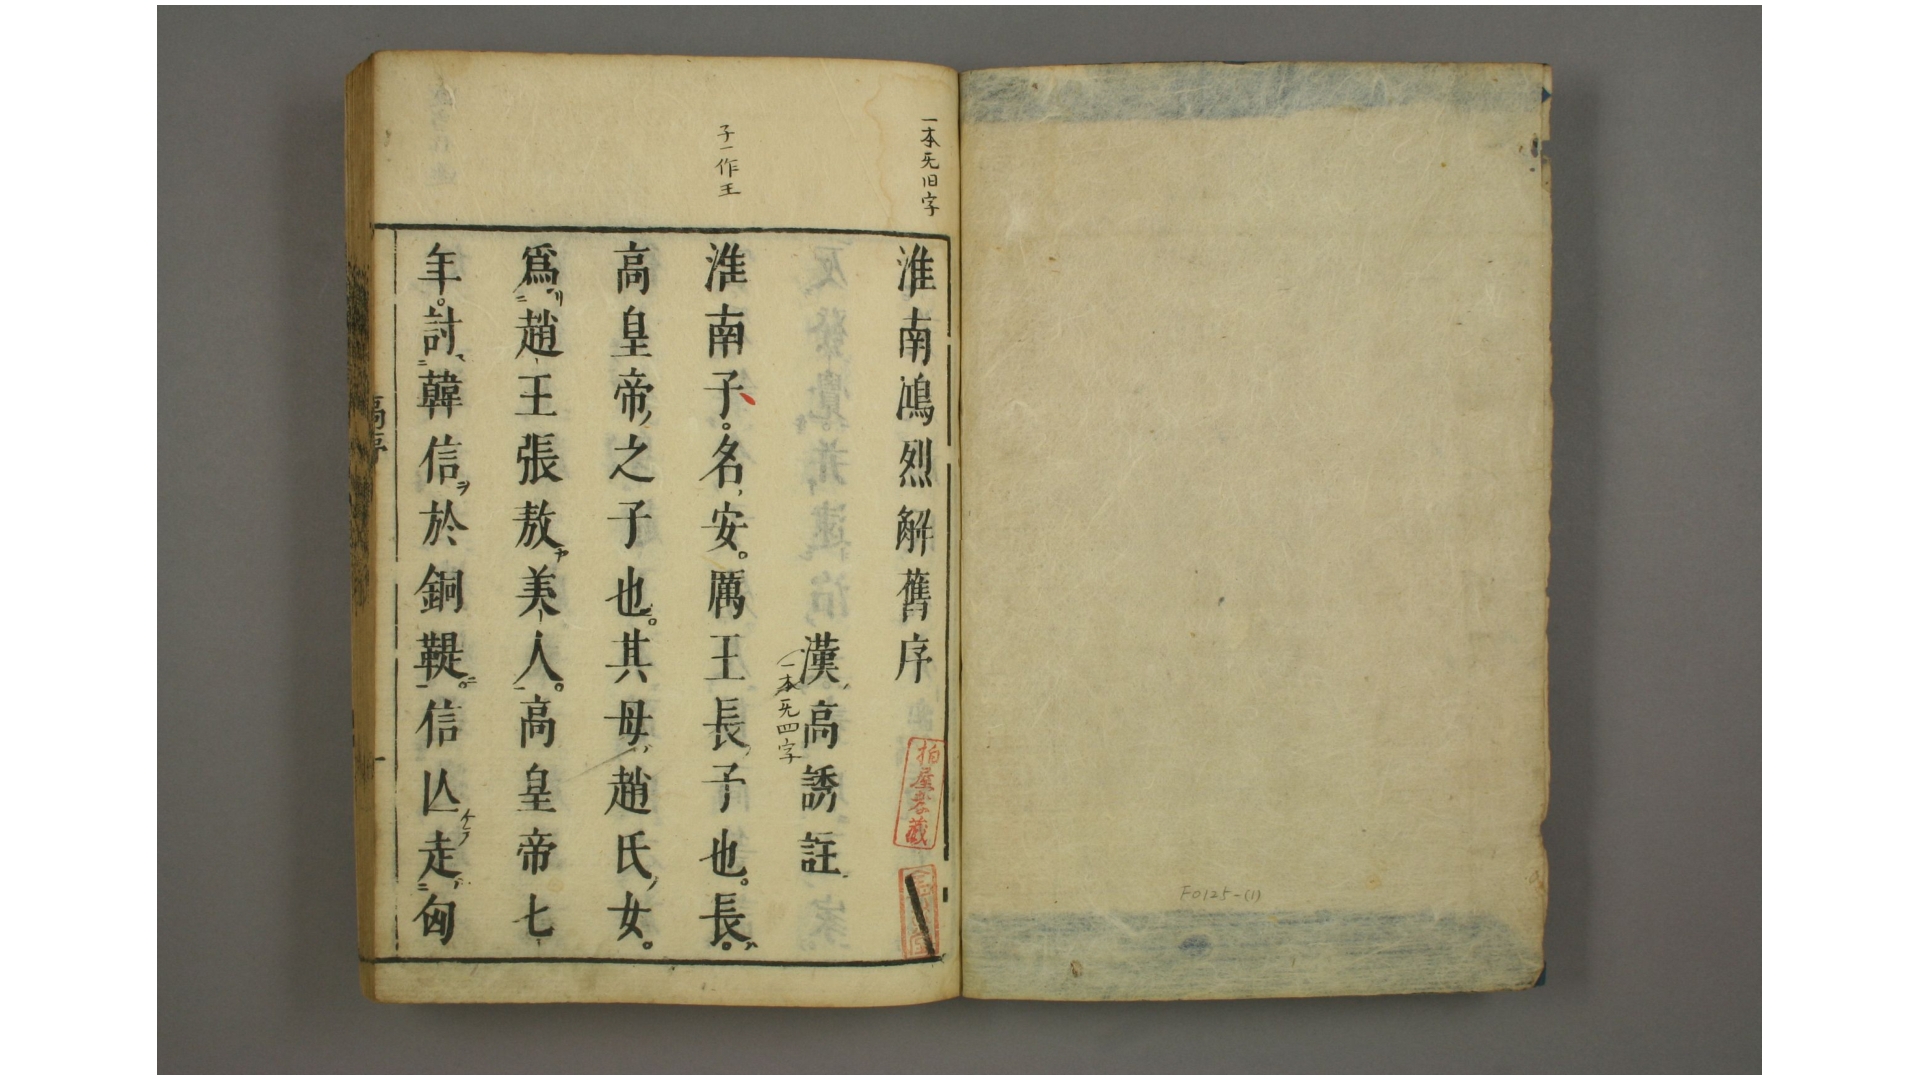 一本旡旧字
淮南鴻烈解舊序
漢高誘註
一本旡四字
子一作王
淮南子。名安。厲王長子也。長。
高皇帝之子也。其母趙氏女。
爲趙王張敖美人。高皇帝七
年。討韓信於銅鞮。信亡走匈
高序
一
F0125-(1)